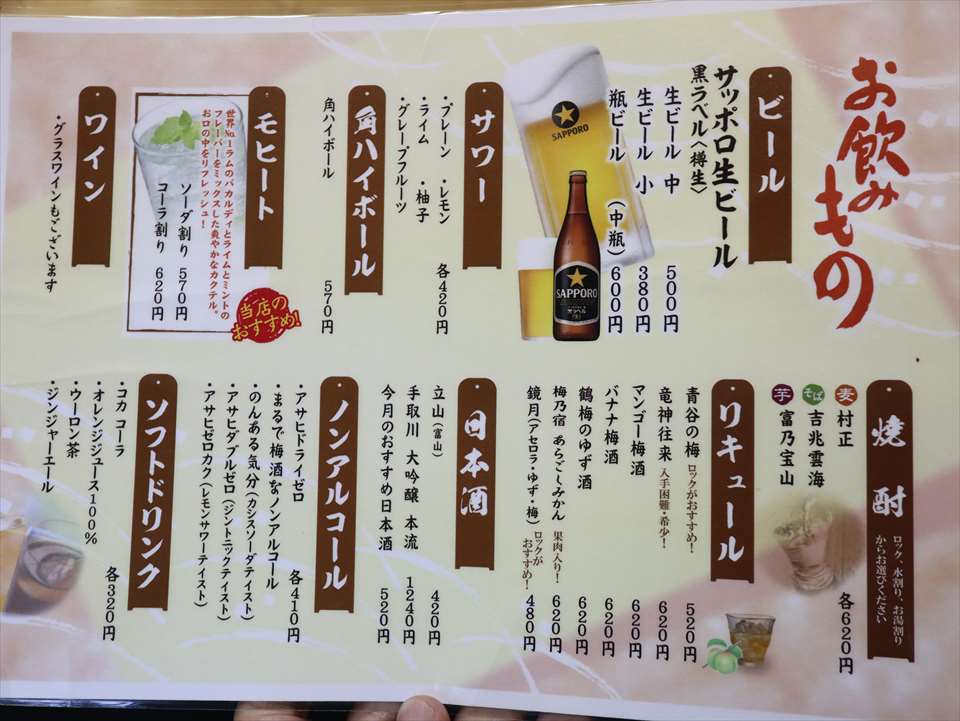 お飲みもの
ビール
サッポロ生ビール
黒ラベル〈樽生〉
生ビール 中 500円
生ビール 小 380円
瓶ビール (中瓶) 600円
SAPPORO
SAPPORO
サワー
・プレーン ・レモン
・ライム ・柚子
・グレープフルーツ
各420円
角ハイボール
角ハイボール 570円
モヒート
世界No.1ラムのバカルディとライムとミントの
フレーバーをミックスした爽やかなカクテル。
お口の中をリフレッシュ!
ソーダ割り 570円
コーラ割り 620円
当店の
おすすめ!
ワイン
・グラスワインもございます
焼酎
ロック、水割り、お湯割り
からお選びください
麦 村正
そば 吉兆雲海
芋 富乃宝山
各620円
リキュール
青谷の梅 ロックがおすすめ! 520円
竜神往来 入手困難・希少! 620円
マンゴー梅酒 620円
バナナ梅酒 620円
鶴梅のゆず酒 620円
梅乃宿 あらごしみかん 果肉入り! 620円
鏡月(アセロラ・ゆず・梅) ロックがおすすめ! 480円
日本酒
立山(富山) 420円
手取川 大吟醸 本流 1240円
今月のおすすめ日本酒 520円
ノンアルコール
・アサヒドライゼロ
・まるで梅酒なノンアルコール
・のんある気分(カシスソーダテイスト)
・アサヒダブルゼロ(ジントニックテイスト)
・アサヒゼロカク(レモンサワーテイスト)
各410円
ソフトドリンク
・コカ コーラ
・オレンジジュース100%
・ウーロン茶
・ジンジャーエール
各320円